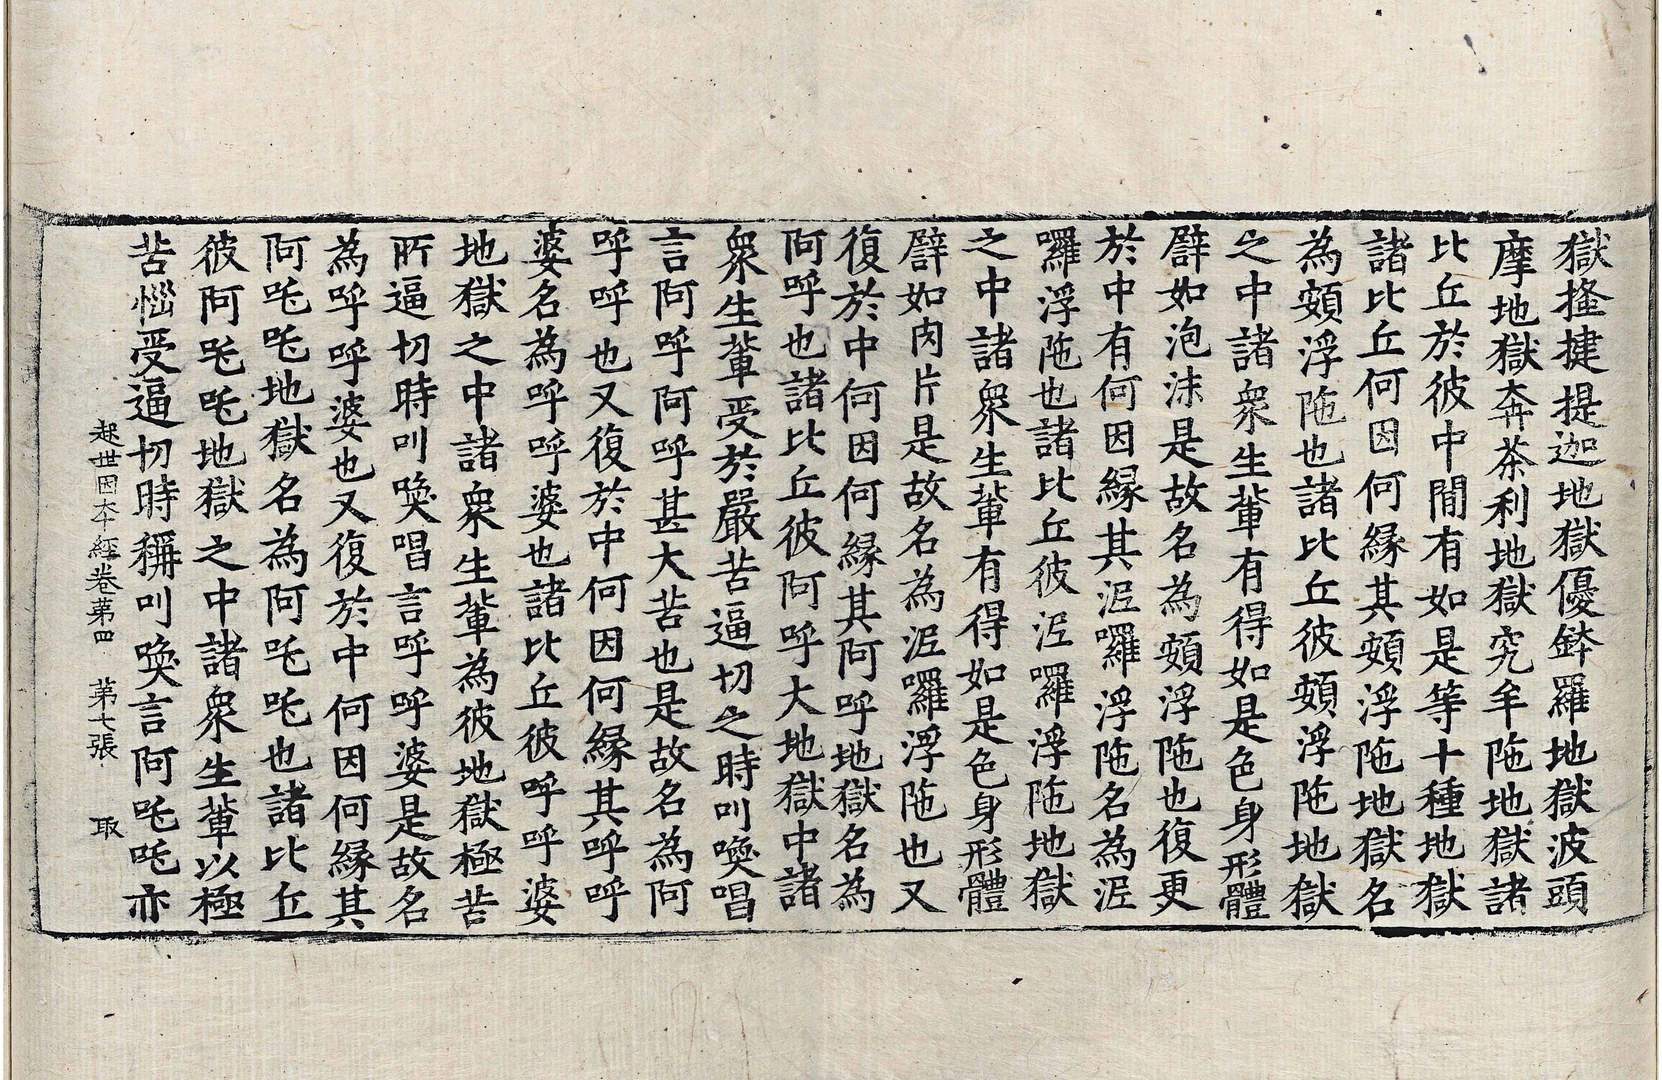 獄搔揵提迦地獄優鉢羅地獄波頭
摩地獄奔荼利地獄究牟陁地獄諸
比丘於彼中間有如是等十種地獄
諸比丘何因何縁其頞浮陁地獄名
為頞浮陁也諸比丘彼頞浮陁地獄
之中諸衆生軰有得如是色身形體
譬如泡沫是故名為頞浮陁也復更
於中有何因縁其泥囉浮陁名為泥
囉浮陁也諸比丘彼泥囉浮陁地獄
之中諸衆生軰有得如是色身形體
譬如肉片是故名為泥囉浮陁也又
復於中何因何縁其阿呼地獄名為
阿呼也諸比丘彼阿呼大地獄中諸
衆生軰受於嚴苦逼切之時叫喚唱
言阿呼阿呼甚大苦也是故名為阿
呼呼也又復於中何因何縁其呼呼
婆名為呼呼婆也諸比丘彼呼呼婆
地獄之中諸衆生軰為彼地獄極苦
所逼切時叫喚唱言呼呼婆是故名
為呼呼婆也又復於中何因何縁其
阿吒吒地獄名為阿吒吒也諸比丘
彼阿吒吒地獄之中諸衆生軰以極
苦惱受逼切時稱叫喚言阿吒吒亦
起世因本經卷第四　第七張　取